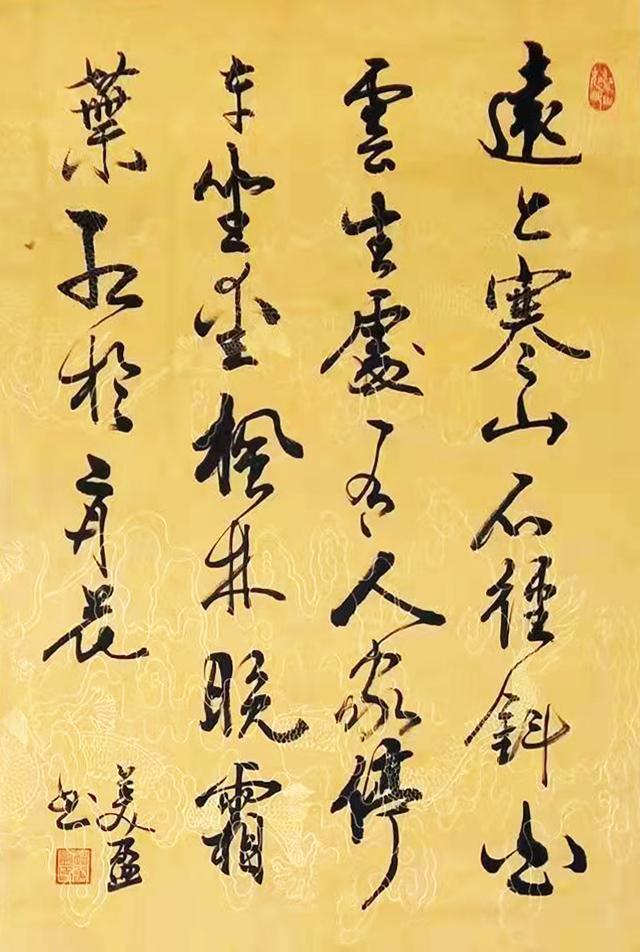 遠上寒山石徑斜白
雲生處有人家停
車坐愛楓林晚霜
葉紅於二月花
美盈
書